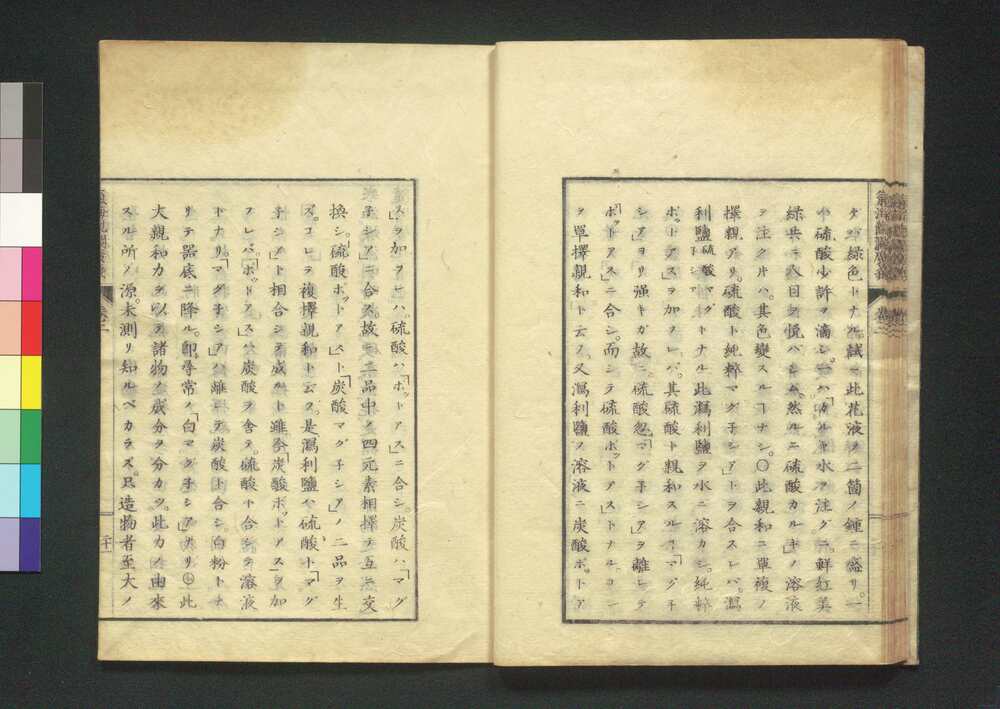 タル緑色トナル試ニ此花液ヲ二箇ノ鍾ニ盛リ。一
ハ硫酸少許ヲ滴シ。一ハ「カルキ水ヲ注グニ。鮮紅美
緑共ニ人目ヲ悦バシム。然ルニ硫酸カルキ」ノ溶液
ヲ注ク片ハ。其色變スルヿナシ。〇此親和ニ單複ノ
擇親アリ。硫酸ト純粹マグ子シア」トヲ合スレバ。瀉
利鹽硫酸マグ子シアトナル此瀉利鹽ヲ水ニ溶カシ。純粹
ポットアス」ヲ加フレバ。其硫酸ト親和スルヿ「マグ子
シア」ヨリ強キガ故ニ。硫酸忽「マグ子シア」ヲ離レテ
「ポットアス」ニ合シ。而シテ硫酸ポットアス」トナル。コレ
ヲ單擇親和ト云フ。又瀉利鹽ノ溶液ニ炭酸ポットア
ス」ヲ加フレハ。硫酸ハ「ポットアス」ニ合シ。炭酸ハ「マグ
子シア」ニ合ス。故ニ二品中ノ四元素相擇テ互ニ交
換シ。硫酸ポットアス」ト「炭酸マグ子シア」ノ二品ヲ生
ズ。コレヲ複擇親和ト云フ。是瀉利鹽ハ硫酸ト「マグ
子シア」ト相合シテ成ルト雖モ「炭酸ポットアス」ヲ加
フレバ。「ポットアス」ハ炭酸ヲ舎テ。硫酸ト合シテ溶液
トナリ。「マグ子シア」ハ離レテ炭酸ト合シ。白粉トナ
リテ器底ニ降ル。即尋常ノ「白マグ子シア」ナリ 此
大親和力ヲ以テ諸物ノ成分ヲ分カツ。此力ノ由來
スル所ノ源。未測リ知ルベカラズ。只造物者至大ノ
卷二
二十